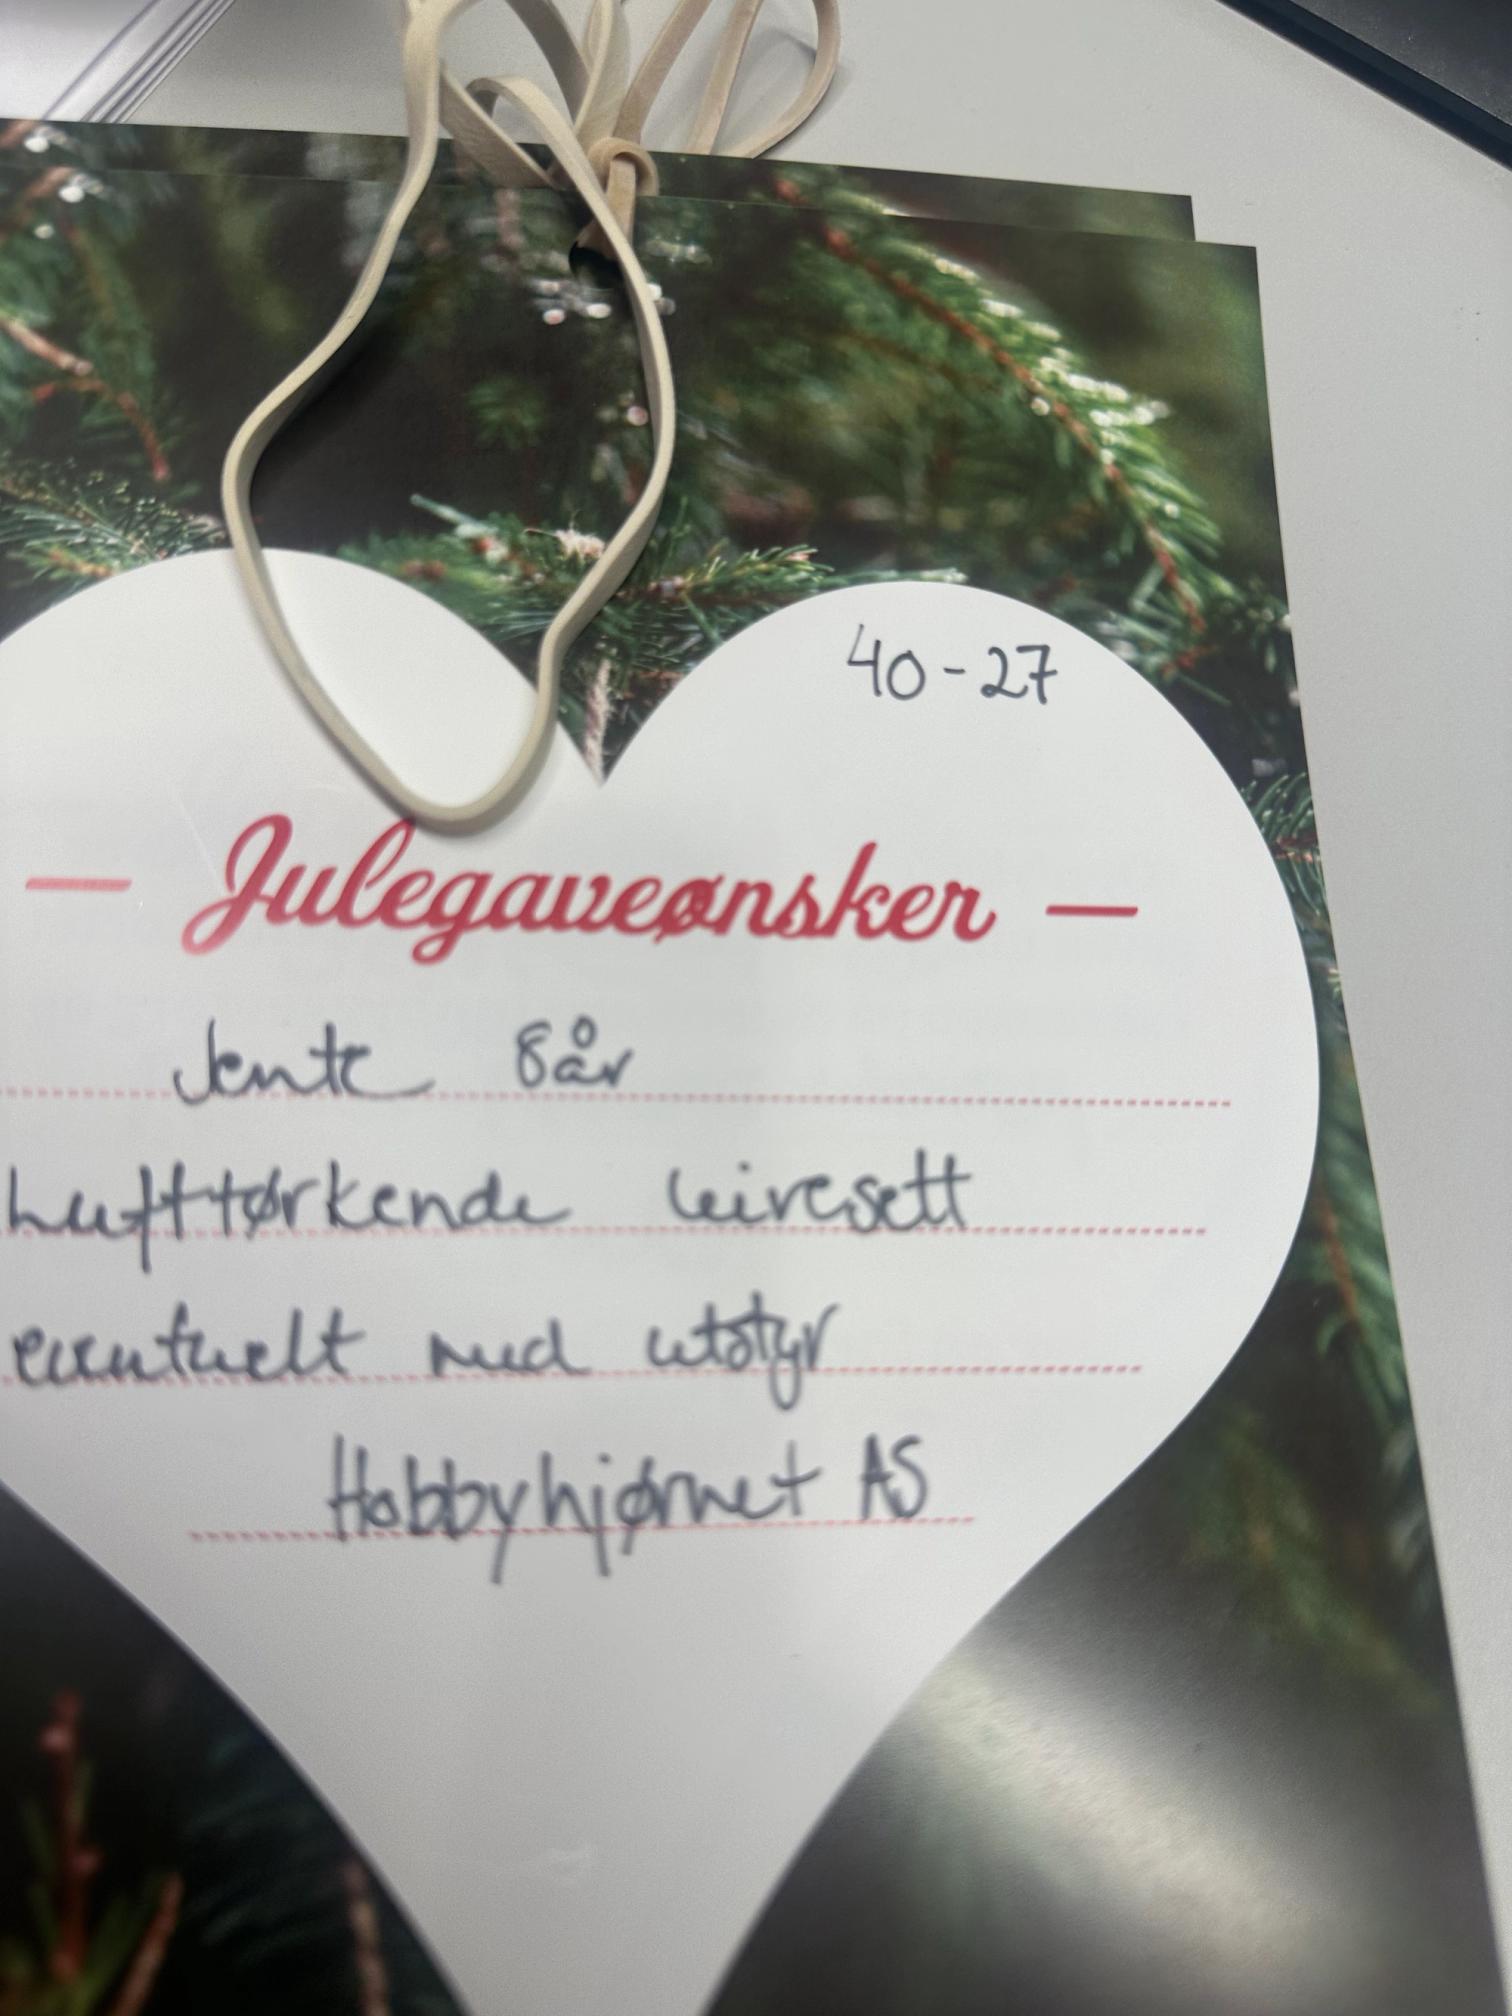 40-27
— Julegaveønsker —
Jente 8år
Lufttørkende leiresett
eventuelt med utstyr
Hobbyhjørnet AS